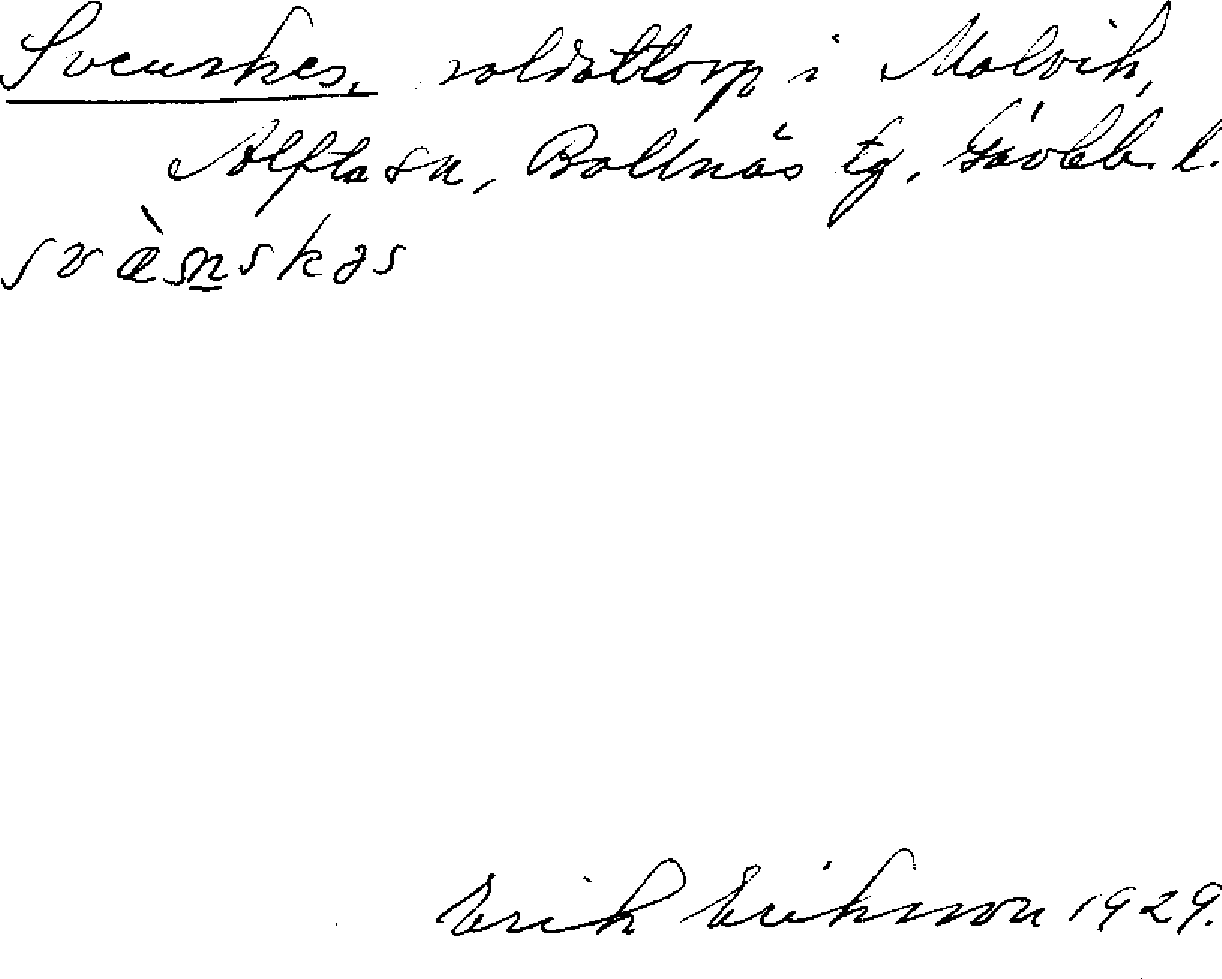 Svenskes, soldattorp i Malvik,
Alfta sn, Bollnäs tg, Gävleb. l.
svæ̀nskəs
Erik Eriksson 1929.